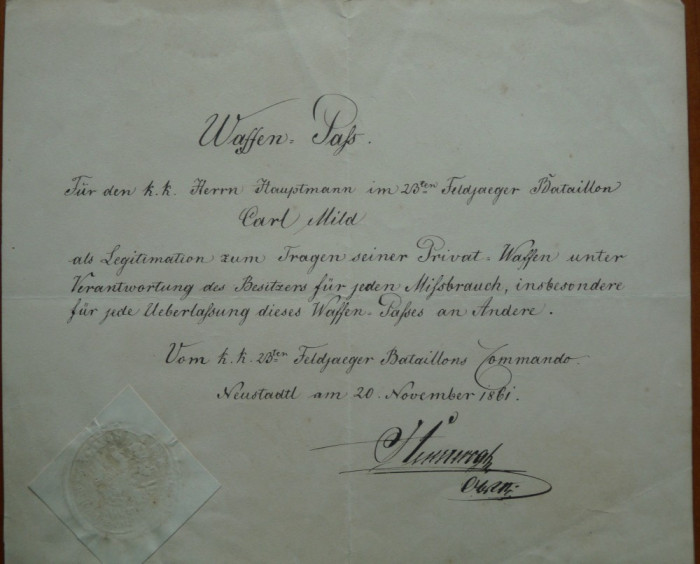 Waffen = Paſs.
Für den k. k. Herrn Hauptmann im 23ten Feldjaeger Bataillon
Carl Mild
als Legitimation zum Tragen seiner Privat = Waffen unter
Verantwortung des Besitzers für jeden Miſsbrauch, insbesondere
für jede Ueberlaſsung dieses Waffen = Paſses an Andere.
Vom k. k. 23ten Feldjaeger Bataillons Commando.
Neustadtl am 20. November 1861.